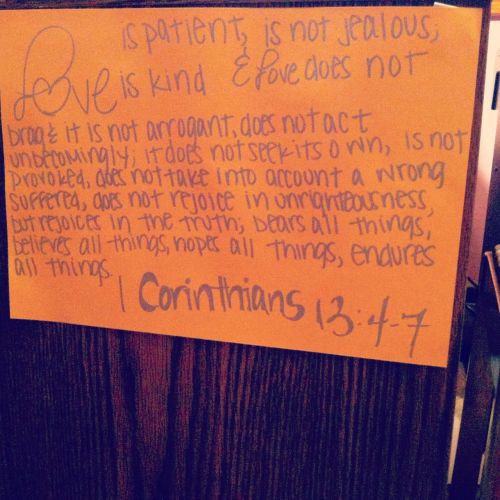 Love is patient, is not jealous,
is kind & love does not
brag & it is not arrogant, does not act
unbecomingly; it does not seek its own, is not
provoked, does not take into account a wrong
suffered, does not rejoice in unrighteousness,
but rejoices in the truth; bears all things,
believes all things, hopes all things, endures
all things.
1 Corinthians 13:4-7